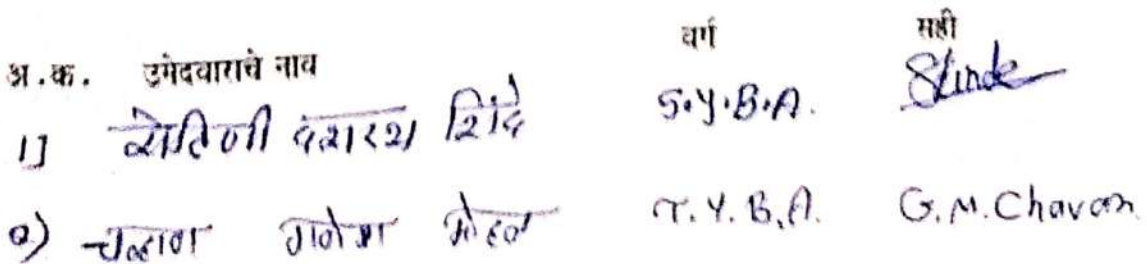 अ.क्र. उमेदवाराचे नाव वर्ग सही
1] रोहिणी दशरथ शिंदे S.Y.B.A. Shinde
२) चव्हाण गणेश मोहन T.Y.B.A. G.M.Chavan